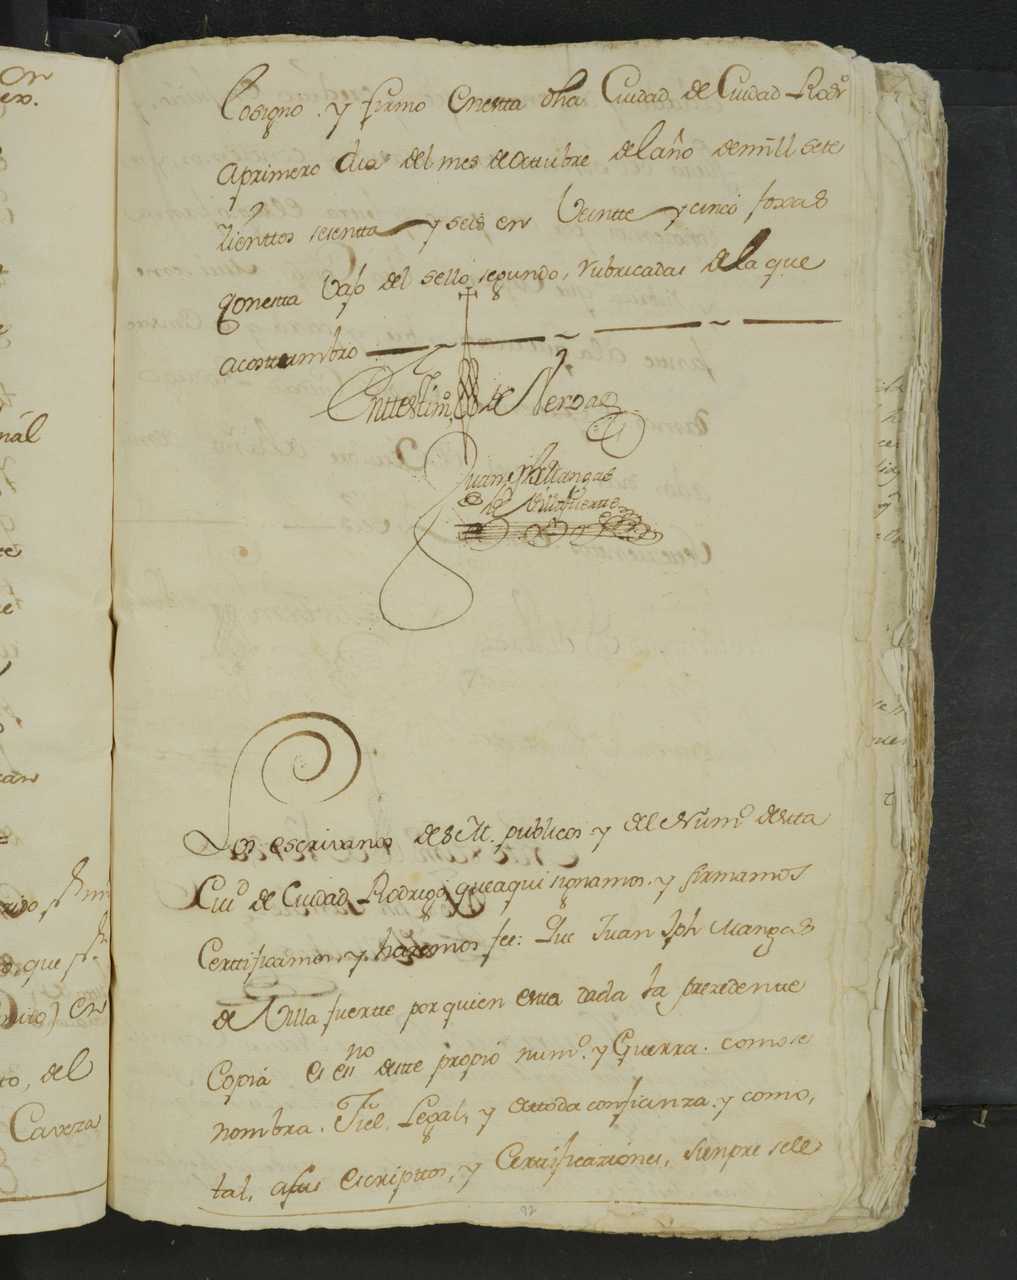 Lo signo y firmo en estta dha Ciudad de Ciudad Rodrº
a primero dia del mes de octtubre del año de mill sete
zienttos sesentta y seis en Veintte y cinco foxas
con estta vajo del sello segundo, rubricadas de la que
acosttumbro
En ttesttimº de Verdad
Juan Jph Mangas
de Villafuertte
Los escrivanos de S. M. publicos y del Numº de esta
Ciuᵈ de Ciudad Rodrigo, que aqui signamos y firmamos
Certtificamos, y hazemos fee: Que Juan Jph Mangas
de Villa fuertte por quien estta dada la prezedentte
Copia es essno deste propio numº y Guerra como se
nombra. Fiel, Legal, y de ttoda confianza y como,
tal, a sus escripttos, y Certtificaziones, siempre se le
nál
Cavera
92